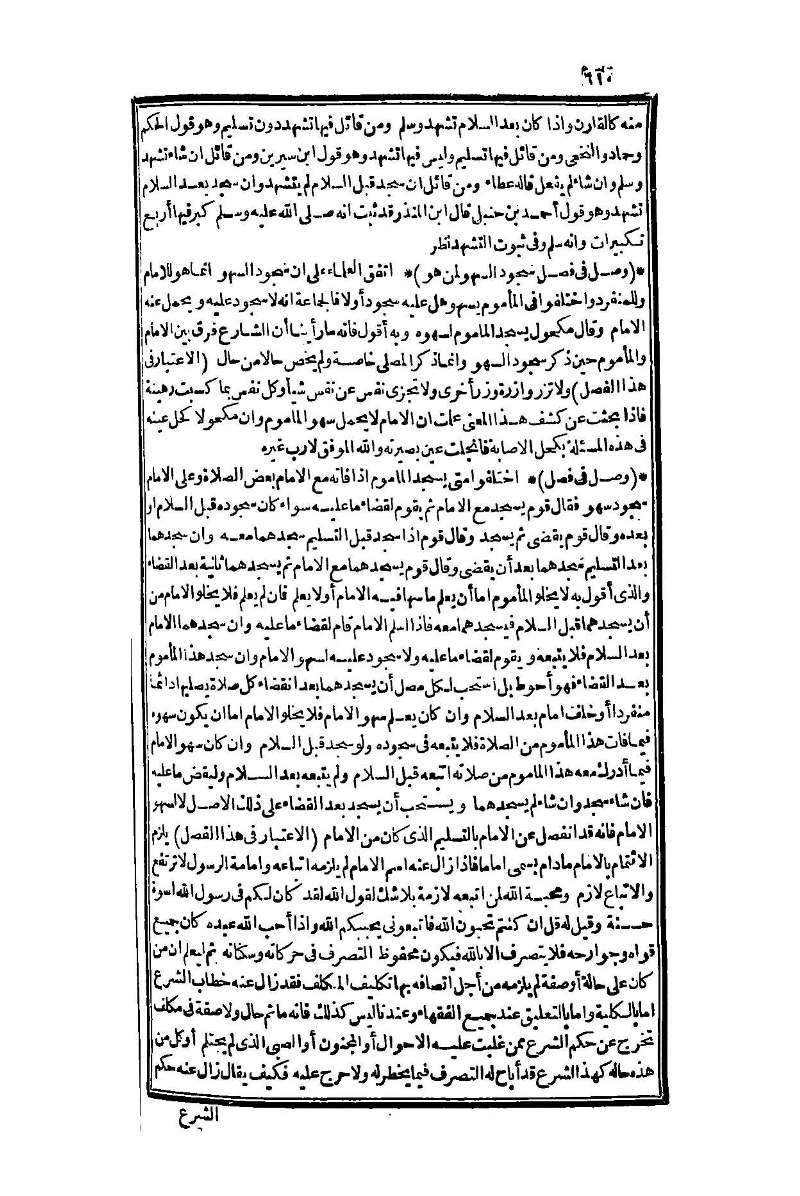 ٦١٢
منه كالقارن واذا كان بعد السلام تشهد وسلم ومن قائل فيها تشهد دون تسليم وهو قول الحكم
وحماد والنخعى ومن قائل فيها تسليم وليس فيها تشهد وهو قول ابن سيرين ومن قائل ان شاء تشهد
وسلم وان شاء لم يفعل قاله عطاء ومن قائل ان سجد قبل السلام لم يتشهد وان سجد بعد السلام
تشهد وهو قول أحمد بن حنبل قال ابن المنذر قد ثبت انه صلى الله عليه وسلم كبر فيها أربع
تكبيرات وانه سلم وفى ثبوت التشهد نظر
*(وصل فى فصل سجود السهو لمن هو)* اتفق العلماء على ان سجود السهو انما هو للامام
وللمنفرد واختلفوا فى المأموم يسهو هل عليه سجود أولا فالجماعة انه لا سجود عليه ويحمل عنه
الامام وقال مكحول يسجد الماموم لسهوه وبه أقول فانه ما رأينا أن الشارع فرق بين الامام
والمأموم حين ذكر سجود السهو وانما ذكر المصلى خاصة ولم يخص حالا من حال (الاعتبار فى
هذا الفصل) ولا تزر وازرة وزر أخرى ولا تجزى نفس عن نفس شيأ وكل نفس بما كسبت رهينة
فاذا بحثت عن كشف هذا المعنى علمت ان الامام لا يحمل سهو المأموم وان مكحولا كحل عينه
فى هذه المسئلة بكحل الاصابة فانجلت عين بصيرته والله الموفق لا رب غيره
*(وصل فى فصل)* اختلفوا متى يسجد الماموم اذا فاته مع الامام بعض الصلاة وعلى الامام
سجود سهو فقال قوم يسجد مع الامام ثم يقوم لقضاء ما عليه سواء كان سجوده قبل السلام او
بعده وقال قوم يقضى ثم يسجد وقال قوم اذا سجد قبل التسليم سجدهما معه وان سجدهما
بعد التسليم سجدهما بعد أن يقضى وقال قوم يسجدهما مع الامام ثم يسجدهما ثانية بعد القضاء
والذى أقول به لا يخلو المأموم اما أن يعلم ما سها فيه الامام أولا يعلم فان لم يعلم فلا يخلو الامام من
أن يسجدهما قبل السلام فيسجدهما معه فاذا سلم الامام قام لقضاء ما عليه وان سجدهما الامام
بعد السلام فلا يتبعه ويقوم لقضاء ما عليه ولا سجود عليه لسهو الامام وان سجد هذا المأموم
بعد القضاء فهو أحوط بل أستحب لكل مصل أن يسجدهما بعد انقضاء كل صلاة يصليها دائما
منفردا أو خلف امام بعد السلام وان كان يعلم سهو الامام فلا يخلو الامام اما ان يكون سهوه
فيما فات هذا المأموم من الصلاة فلا يتبعه فى سجوده ولو سجد قبل السلام وان كان سهو الامام
فيما أدرك معه هذا الماموم من صلاته اتبعه قبل السلام ولم يتبعه بعد السلام وليقض ما عليه
فان شاء سجد وان شاء لم يسجدهما ويستحب أن يسجد بعد القضاء على ذلك الاصل لا لسهو
الامام فانه قد انفصل عن الامام بالتسليم الذى كان من الامام (الاعتبار فى هذا الفصل) يلزم
الائتمام بالامام مادام يسمى اماما فاذا زال عنه اسم الامام لم يلزمه اتباعه وامامة الرسول لا ترتفع
والاتباع لازم ومحبة الله لمن اتبعه لازمة بلا شك لقول الله لقد كان لكم فى رسول الله اسوة
حسنة وقيل له قل ان كنتم تحبون الله فاتبعونى يحببكم الله واذا أحب الله عبده كان جميع
قواه وجوارحه فلا يتصرف الا بالله فيكون محفوظ التصرف فى حركاته وسكناته ثم ليعلم ان من
كان على حالة أو صفة لم يلزمه من أجل اتصافه بها تكليف المكلف فقد زال عنه خطاب الشرع
اما بالكلية واما بالتعليق عند جميع الفقهاء وعندنا ليس كذلك فانه ما ثم حال ولا صفة فى مكلف
تخرج عن حكم الشرع ممن غلبت عليه الاحوال أو المجنون أو الصبى الذى لم يحتلم أو كل من
هذه حاله كهذا الشرع قد أباح له التصرف فيما يخطر له ولا حرج عليه فكيف يقال زال عنه حكم
الشرع